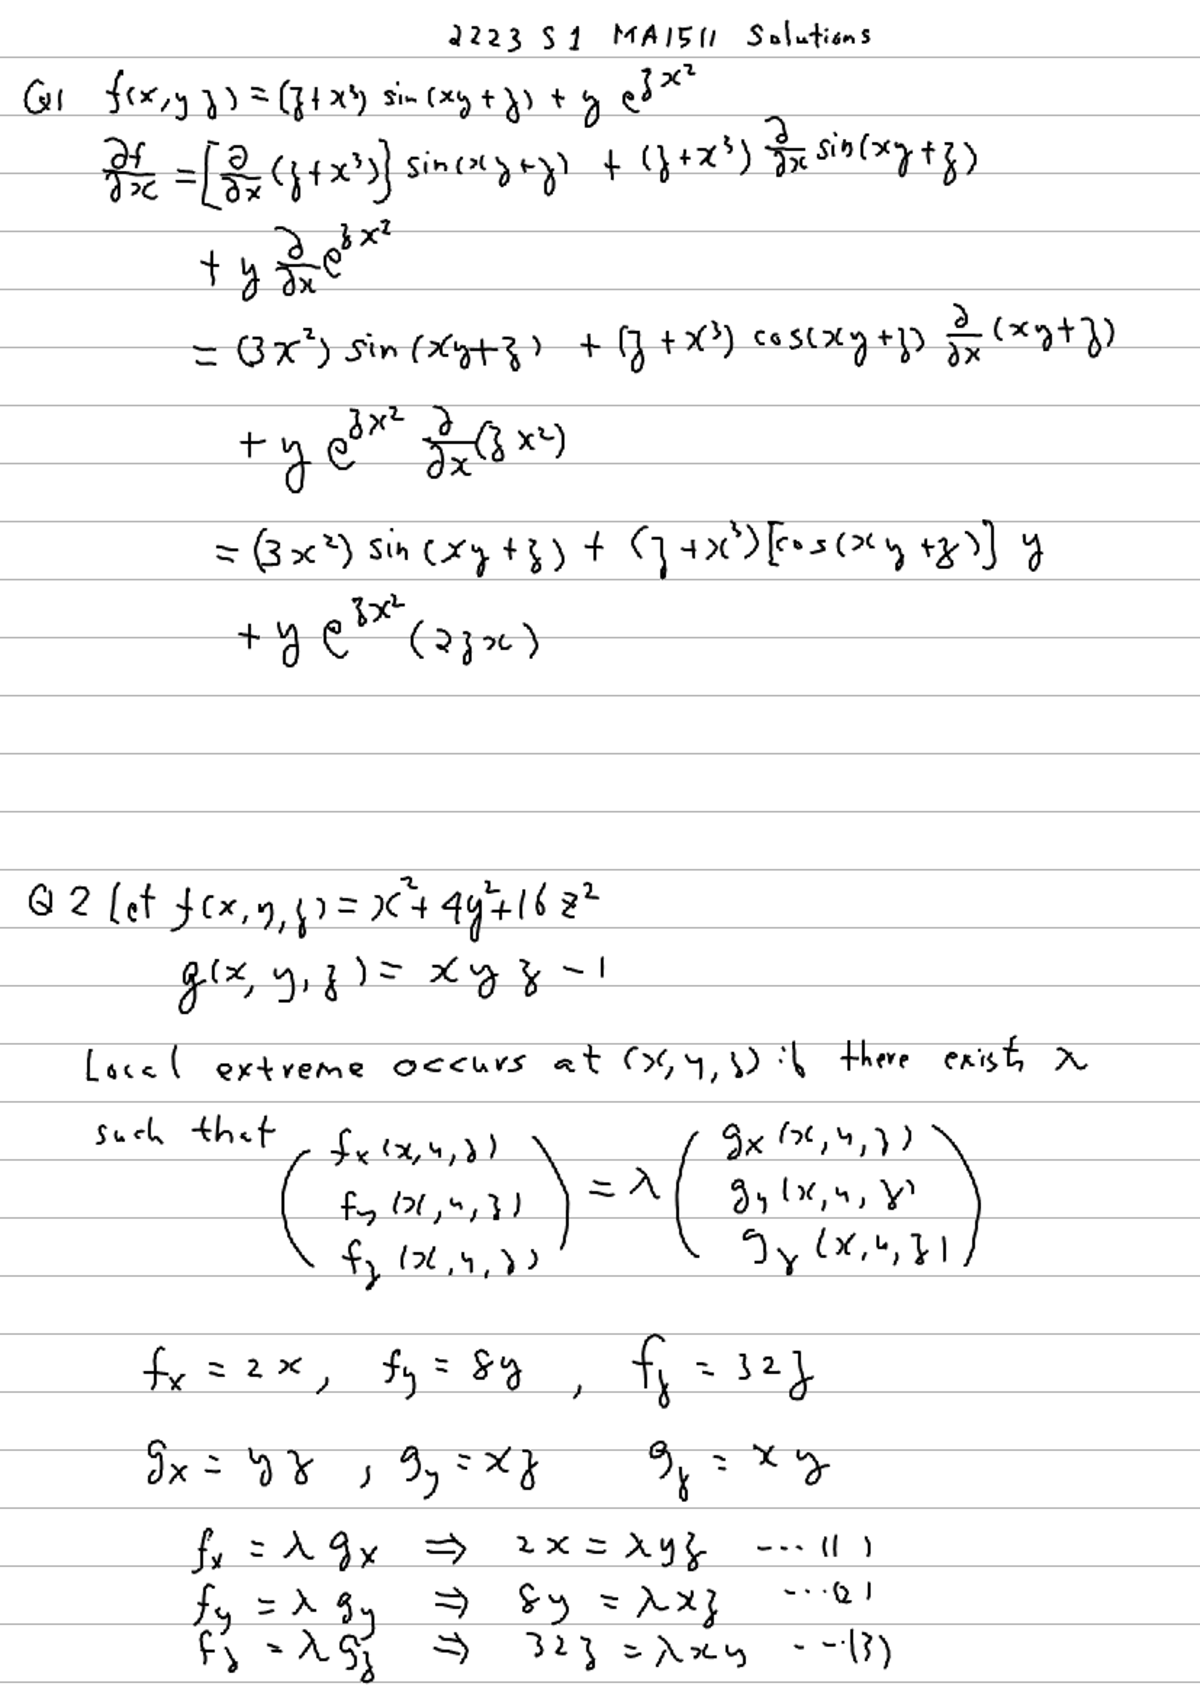 2223 S1 MA1511 Solutions
Q1 f(x,y z) = (z+x³) sin(xy+z) + y e^{zx²}
∂f/∂x = [∂/∂x (z+x³)] sin(xy+z) + (z+x³) ∂/∂x sin(xy+z)
+ y ∂/∂x e^{zx²}
= (3x²) sin(xy+z) + (z+x³) cos(xy+z) ∂/∂x (xy+z)
+ y e^{zx²} ∂/∂x (zx²)
= (3x²) sin(xy+z) + (z+x³)[cos(xy+z)] y
+ y e^{zx²} (2zx)
Q2 Let f(x,y,z) = x²+4y²+16z²
g(x,y,z) = xyz-1
Local extreme occurs at (x,y,z) if there exists λ
such that
(f_x(x,y,z) f_y(x,y,z) f_z(x,y,z)) = λ (g_x(x,y,z) g_y(x,y,z) g_z(x,y,z))
f_x = 2x, f_y = 8y , f_z = 32z
g_x = yz , g_y = xz g_z = xy
f_x = λ g_x ⇒ 2x = λyz ---(1)
f_y = λ g_y ⇒ 8y = λxz ---(2)
f_z = λ g_z ⇒ 32z = λxy ---(3)